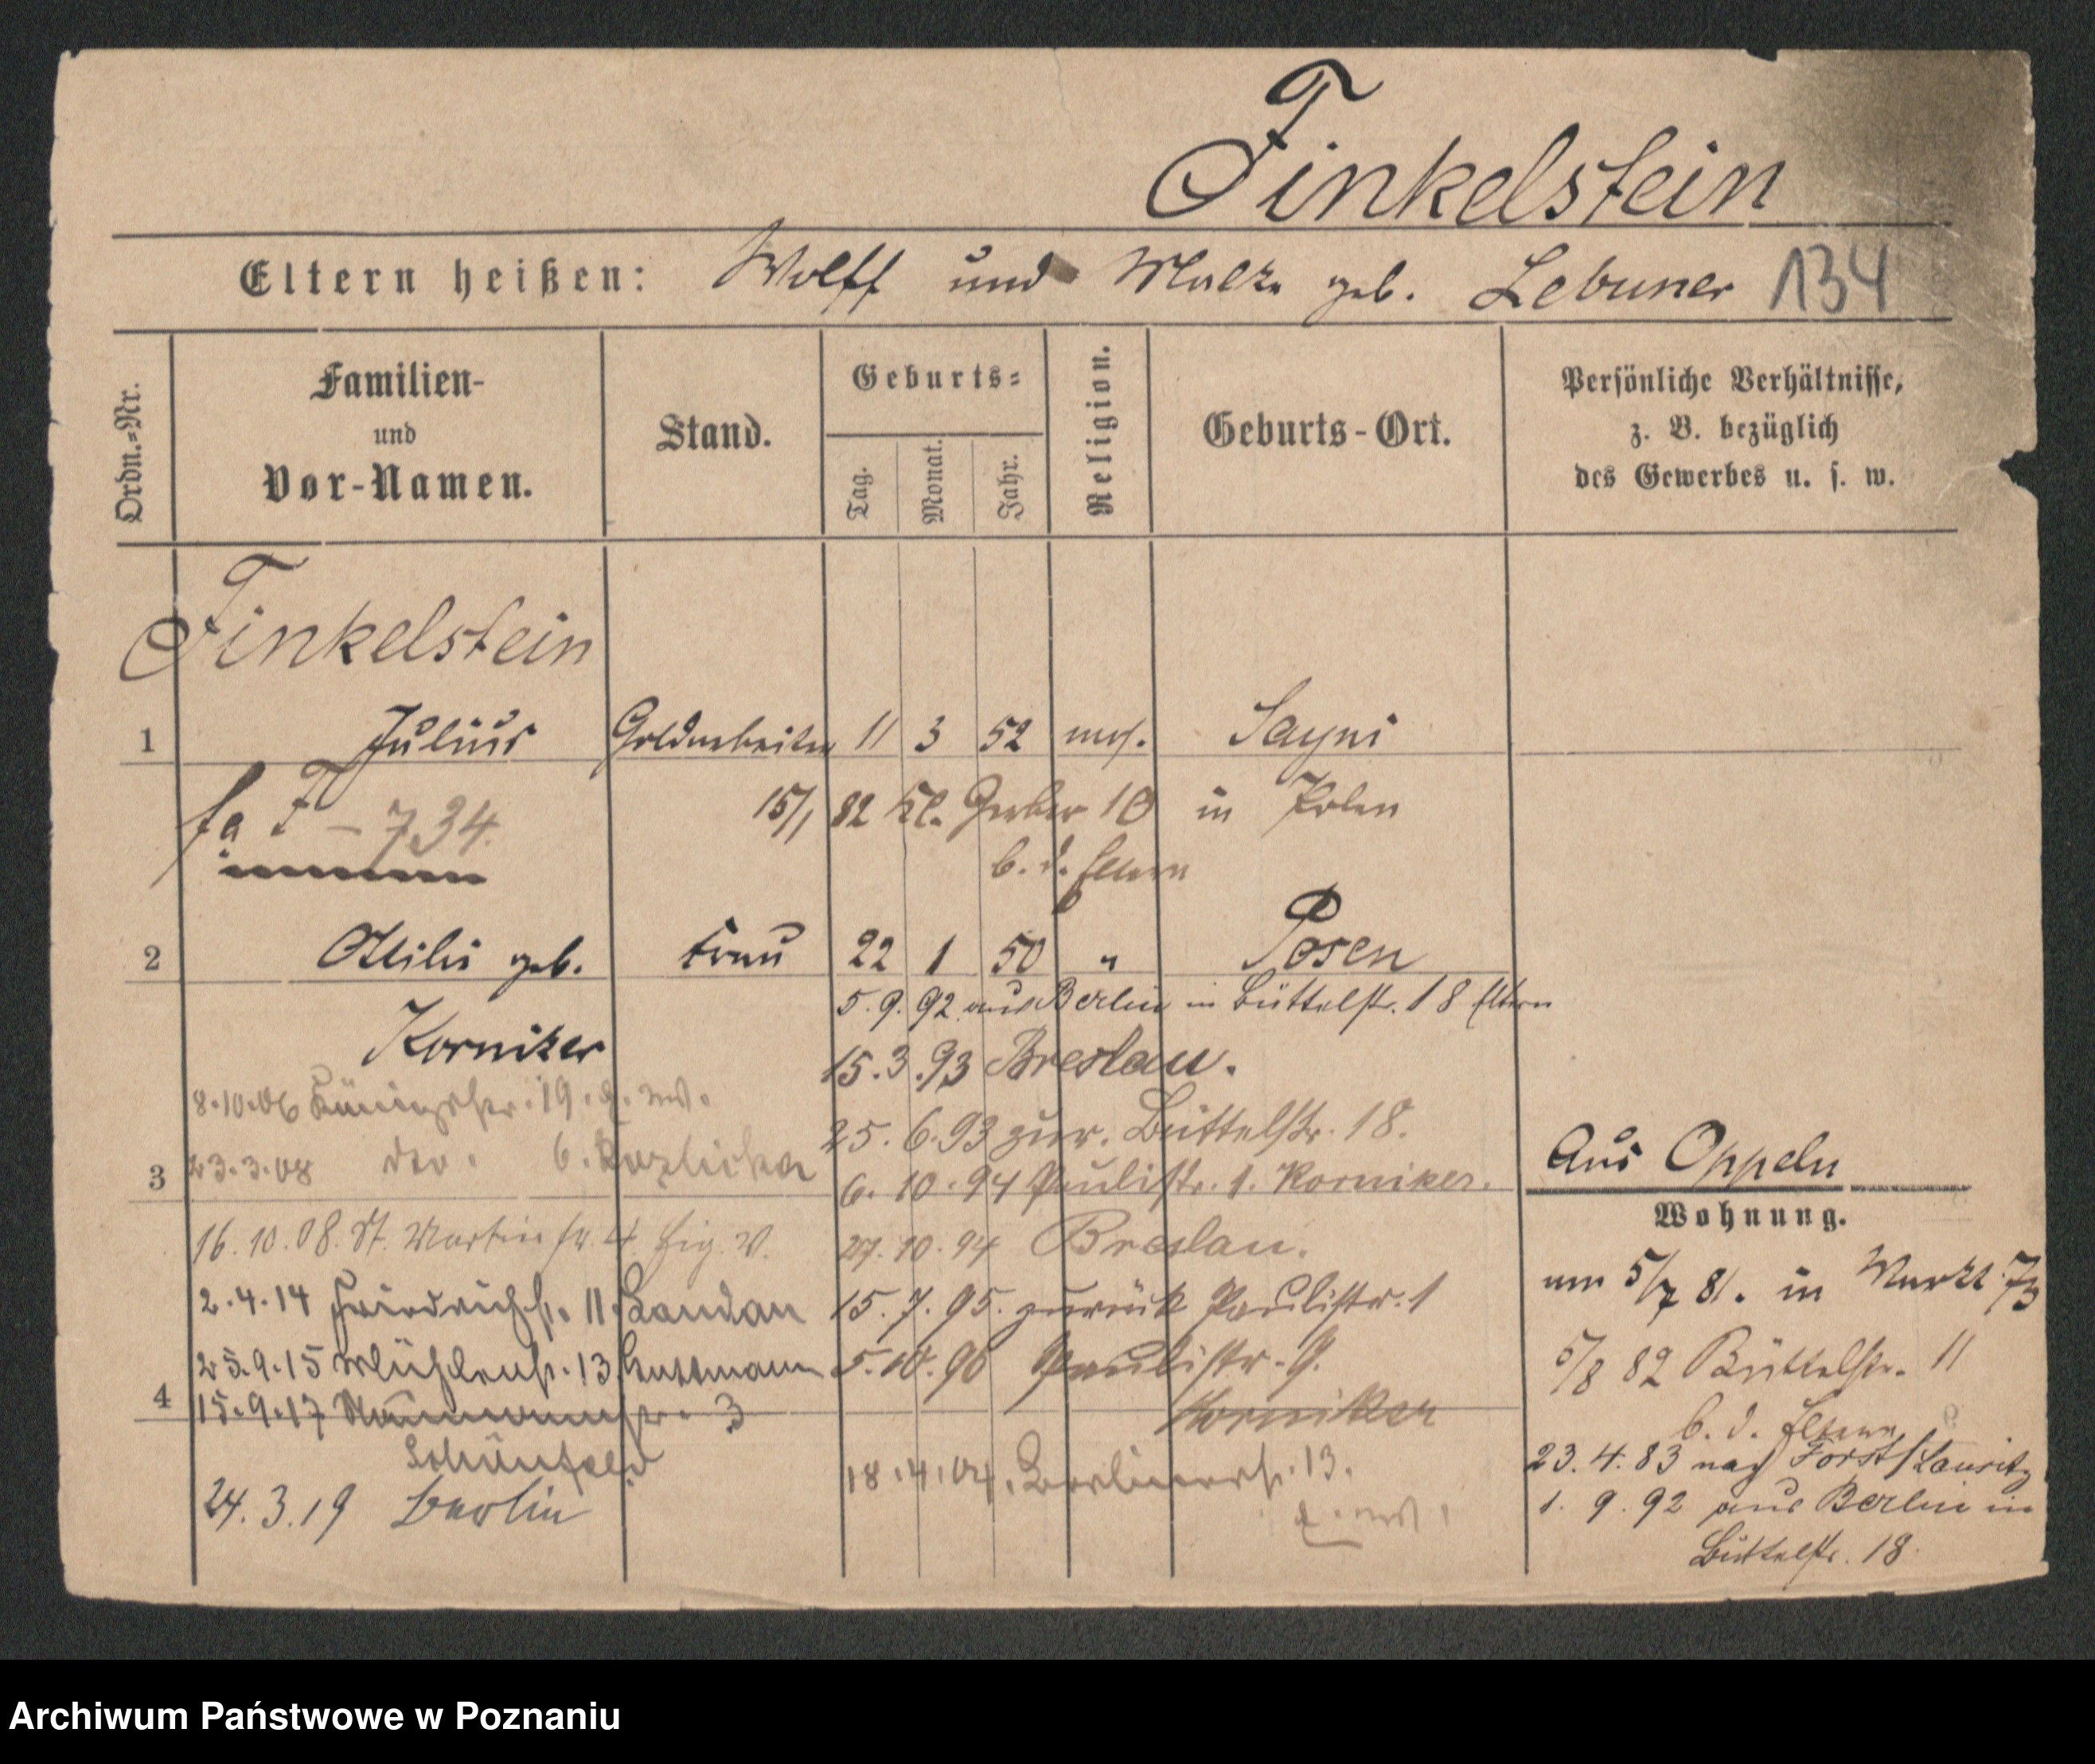 Finkelstein
Eltern heißen: Wolff und Malke geb. Lebuner 134
Ordn.=Nr.
Familien-
und
Vor-Namen.
Stand.
Geburts=
Tag. Monat. Jahr.
Religion.
Geburts-Ort.
Persönliche Verhältnisse,
z. B. bezüglich
des Gewerbes u. s. w.
Finkelstein
1 Julius Goldarbeiter 11 3 52 mos. Sayni
15/1 82 Kl. Gerber 10 in Polen
fa F - 734.
b. d. Eltern
2 Ottilie geb. Frau 22 1 50 " Posen
Korniker
5. 9. 92 aus Berlin in Büttelstr. 18 Eltern
15. 3. 93 Breslau.
25. 6. 93 zur. Büttelstr. 18.
6. 10. 94 Paulistr. 1. Korniker.
27. 10. 94 Breslau.
15. 7. 95. zurück Paulistr. 1
5. 10. 96 Paulistr. 9.
Korniker
18. 4. 04. Berlinerstr. 13.
8. 10. 06 Königstr. 19.
3 23. 3. 08 do.
16. 10. 08. St. Martinstr. 4 Eig. W.
2. 4. 14 Friedrichstr. 11 Landau
25. 9. 15 Mühlenstr. 13 Guttmann
4 15. 9. 17 Naumannstr. 3
Schönfeld
24. 3. 19 Berlin
Aus Oppeln
Wohnung.
um 5/7 81. in Markt 73
5/8 82 Büttelstr. 11
b. d. Eltern
23. 4. 83 nach Forst/Lausitz
1. 9. 92 aus Berlin in
Büttelstr. 18.
Archiwum Państwowe w Poznaniu